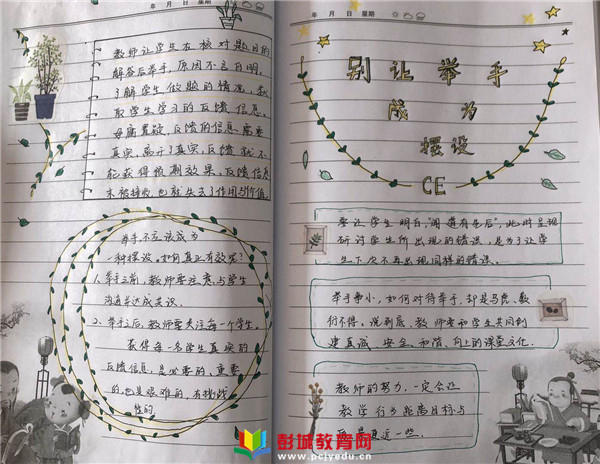 年 月 日 星期
教师让学生在核对题目的
解答后举手，原因不言自明，
了解学生做题的情况，获
取学生学习的反馈信息，
毋庸置疑，反馈的信息需要
真实，离开了真实，反馈就不
能获得预期效果，反馈信息
未被接收，也就失去了作用与价值。
举手不应该成为
一种摆设。如何真正有效呢？
举手之前，教师要注意，与学生
沟通，达成共识。
2、举手之后，教师要关注每一个学生。
获得每一名学生真实的
反馈信息，是必要的，重要
的，也是艰难的，有挑战
性的
年 月 日 星期
别让举手
成为
摆设
CE
要让学生明白，“闻道有先后”，此时呈现
研讨学生所出现的错误，是为了让学
生下次不再出现同样的错误。
举手事小，如何对待举手，却是马虎、敷
衍不得。说到底，教师要和学生共同创
建真诚、安全、和谐、向上的课堂文化。
教师的努力，一定会让
教学行为距离目标与
更近一些.
彭城教育网
www.pcjyedu.cn